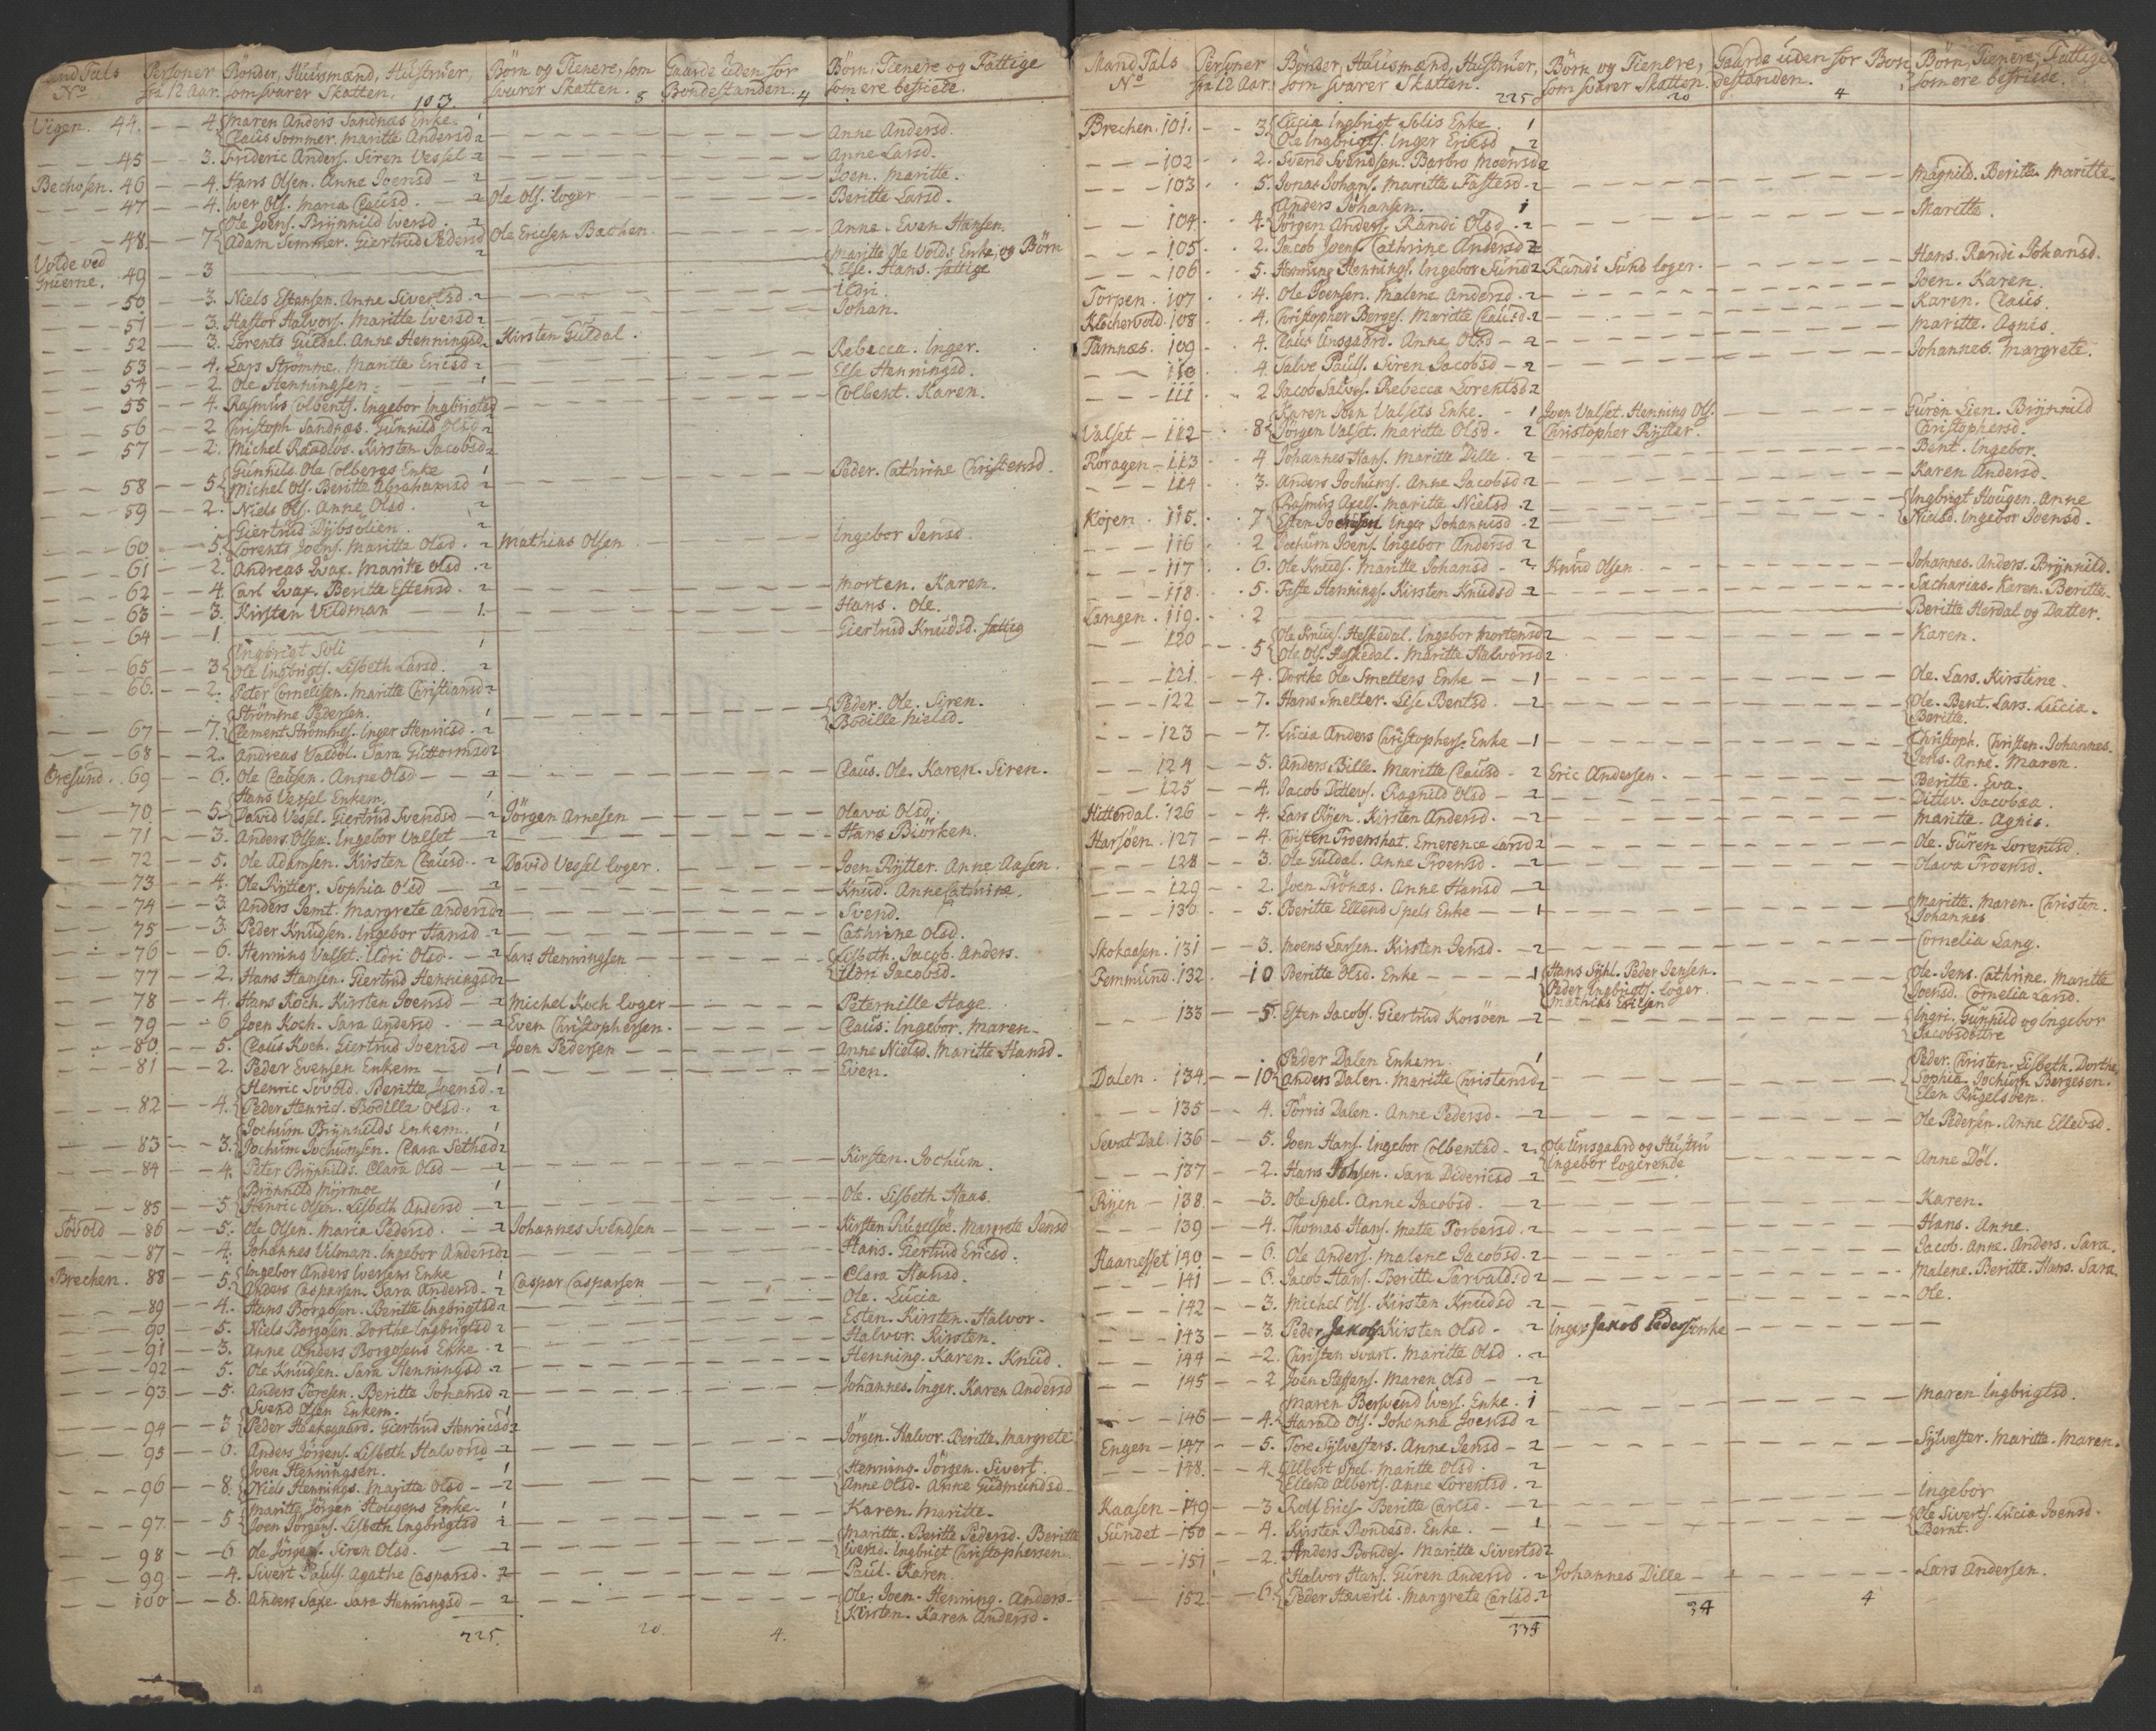 Mand Tals No | Personer fra 12 Aar. | Bönder, Huusmænd, Hustruer, som svarer Skatten. 103. | Börn og Tienere, som svarer Skatten. 8 | Gaarde uden for Bondestanden. 4 | Börn, Tienere og Fattige som ere befriede.
Vigen. 44. 4. Maren Anders Sandnæs Enke. 1
Claus Sommer. Maritte Andersd 2 Anne Andersd.
45 3. Frideric Anders. Siren Vessel 2 Anne Larsd.
Bechosen. 46 4. Hans Olsen. Anne Joensd 2 Joen. Maritte.
47 4. Iver Ols. Maria Clausd. 2 Ole Ols. loger Beritte Larsd.
Ole Joens. Brynnild Iversd. 2
48. 7 Adam Simmer. Giertrud Pedersd 2 Ole Ericsen Bachen Anne. Even Hansen.
Volde ved Gruerne. 49 3 Maritte Ole Volds Enke, og Börn
Else. Hans. fattige
50 3. Niels Estensen. Anne Sivertsd. 2 Ildri
51 3. Hastor Halvors. Maritte Iversd 2 Johan.
52 3. Lorents Guldal. Anne Henningsd. Kirsten Guldal.
53 4. Lars Strömme. Maritte Ericsd 2 Rebecca. Inger.
54 2. Ole Henningsen. 1 Else Henningsd.
55 4. Rasmus Colbents. Ingebor Ingbrigtsd Colbent. Karen.
56 2 Christoph Sandnæs. Gunnild Olsd 2
57 2. Michel Raadlös. Kirsten Jacobsd 2
Gunnild Ole Colbergs Enke 1
58 5 Michel Ols. Beritte Abrahamsd 2 Peder. Cathrine Christensd.
59 2. Niels Ols. Anne Olsd. 2
Giertrud Dybsölien.
60 5. Lorents Joens. Maritte Olsd. 2 Mathias Olsen Ingebor Jensd.
61 2. Andreas Wax. Marite Olsd. 2
62 4. Carl Wax. Beritte Estensd. 2 Morten. Karen.
63 3. Kirsten Vildman 1. Hans. Ole.
64 1. Giertrud Knudsd. fattig
Ingbrigt Soli 1
65 3 Ole Ingbrigts. Lisbeth Larsd. 2
66. 2. Peter Cornelisen. Maritte Christiansd 2
Strömme Pedersen. 1 Peder. Ole. Siren.
67 7. Clement Strömmes. Inger Henricsd. 2 Bodille Nielsd.
68 2. Andreas Valdöl. Sara Guttormsd 2
Öresund. 69 6. Ole Clausen. Anne Olsd 2 Claus. Ole. Karen. Siren.
Hans Vessel Enkem. 1
70 5. David Vessel. Giertrud Svendsd 2 Jörgen Arnesen Olava Olsd.
71 3. Anders Olsen. Ingebor Valset 2 Hans Biörken.
72 5. Ole Adamsen. Kirsten Clausd. 2 David Vessel loger. Joen Rytter. Anne Aasen.
73 4. Ole Rytter. Sophia Olsd 2 Knud. Anne Cathrine.
74 3. Anders Jemt. Margrete Andersd 2 Svend.
75 3. Peder Knudsen. Ingebor Hansd 2 Cathrine Olsd.
76 6. Henning Valset. Ildri Olsd. 2 Lars Henningsen Lisbeth. Jacob. Anders.
77 2. Hans Hansen. Giertrud Henningsd 2 Ildri Jacobsd.
78 4. Hans Koch. Kirsten Joensd 2 Michel Koch loger Peternille Hage.
79 6 Joen Koch. Sara Andersd 2 Even Christophersen. Claus. Ingebor. Maren.
80. 5. Claus Koch. Giertrud Joensd 2 Joen Pedersen Anne Nielsd. Maritte Hansd.
81 2. Peder Evensen Enkem 1 Even.
Henric Sövold. Beritte Joensd. 2
82 4. Peder Henrics. Bodilla Olsd. 2
Jochum Brynnilds Enkem. 1
83 3. Jochum Jochumsen. Clara Sethsd 2
84 4. Peter Brynnilds. Clara Olsd 2 Kirsten. Jochum.
Brynnild Myrmoe 1
85 5 Henric Olsen. Lisbeth Andersd 2 Ole. Lisbeth Haas.
Sövold 86 5. Ole Olsen. Maria Pedersd. 2 Johannes Svendsen Kirsten Rugelsöe. Margrete Jensd
87 4. Johannes Vilman. Ingebor Andersd 2 Hans. Giertrud Ericsd.
Brechen. 88 5. Ingebor Anders Iversens Enke 1
Anders Casparsen. Sara Andersd. 2 Caspar Casparsen Clara Hansd.
89 4. Hans Borgosen. Beritte Ingbrigtsd 2 Ole. Lucia
90 5. Niels Borgosen. Dorthe Ingbrigtsd 2 Esten. Kirsten. Halvor.
91 3. Anne Anders Borgosens Enke. 2 Halvor. Kirsten.
92 5. Ole Knudsen. Sara Henningsd. 2 Henning. Karen. Knud.
93 5. Anders Toresen. Beritte Johansd 2 Johannes. Inger. Karen Andersd
Svend Olsen Enkem. 1
94 3 Peder Haaksgaard. Giertrud Henricsd 2
95 6. Anders Jörgens. Lisbeth Halvorsd 2 Jörgen. Halvor. Beritte. Margrete
Joen Henningsen. 1 Henning. Jörgen. Sivert.
96 8. Niels Hennings. Maritte Olsd 2 Anne Olsd. Anne Gudmundsd.
Maritte Jörgen Hougens Enke. 1
97. 5 Joen Jörgens. Lisbeth Ingbrigtsd 2 Karen. Maritte.
98 6 Ole Jörgens. Siren Olsd. 2 Maritte. Beritte Pedersd. Beritte
Iversd. Ingbrigt Christophersen.
99 4. Sivert Pauls. Agathe Casparsd. 2 Paul. Karen.
100 8. Anders Saxe. Sara Henningsd 2 Ole. Joen. Henning. Anders.
Kirsten. Karen Andersd.
225. 20. 4.
Mand Tals No | Personer fra 12 Aar. | Bönder, Huusmænd, Hustruer, som svarer Skatten. 225 | Börn og Tienere, som svarer Skatten. 20 | Gaarde uden for Bondestanden. 4 | Börn, Tienere, Fattige som ere befriede.
Brechen. 101. 3. Lucia Ingbrigt Solis Enke. 1
Ole Ingbrigts. Inger Ericsd 2
102 2. Svend Svendsen. Barbro Moensd 2
103 5. Jonas Johans. Maritte Fastesd. 2 Magnild. Beritte. Maritte.
Anders Johansen. 1
104. 4. Jörgen Anders. Randi Olsd. 2 Maritte.
105 2. Jacob Joens. Cathrine Andersd 2
106 5. Henning Hennings. Ingebor Sund 2 Randi Sund loger. Hans. Randi Johansd.
Torpen. 107 4. Ole Joensen. Malene Andersd. 2 Joen. Karen.
Klochervold. 108 4. Christopher Berges. Maritte Clausd. 2 Karen. Claus.
Tamnæs. 109 4. Claus Unsgaard. Anne Olsd 2 Maritte. Agnis.
110 4. Salve Pauls. Siren Jacobsd 2 Johannes. Margrete.
111 2 Jacob Salves. Rebecca Lorentsd 2
Karen Joen Valsets Enke. 1 Joen Valset. Henning Ols. Guren Lien. Brynnild
Valset 112 8 Jörgen Valset. Maritte Olsd. 2 Christopher Rytter. Christophersd.
Röragen 113 4 Johannes Hans. Maritte Dille. 2 Bent. Ingebor.
114 3. Anders Jochums. Anne Jacobsd 2 Karen Andersd.
Rasmus Axels. Maritte Nielsd. 2 Ingbrigt Hougen. Anne
Kojen. 115. 7 Esten Inger Johannisd. 2 Nielsd. Ingebor Joensd.
116 2 Jochum Joens. Ingebor Andersd 2
117 6. Ole Knuds. Maritte Johansd 2 Knud Olsen Johannes. Anders. Brynnild.
118. 5. Faste Hennings. Kirsten Knudsd 2 Sacharias. Karen. Beritte.
Langen. 119. 2 Beritte Herdal og Datter.
120 5 Ole Knuds. Heskedal. Ingebor Mortensd 2 Karen.
Ole Ols. Heskedal. Maritte Halvorsd 2
121. 4. Dorthe Ole Smelters Enke 1 Ole. Lars. Kirstine.
122 7. Hans Smelter. Lise Bentsd. 2 Ole. Bent. Lars. Lucia.
Beritte.
123 7. Lucia Anders Christophers. Enke 1 Christoph. Christen. Johannes.
Jens. Anne. Maren.
124 5. Anders Bille. Maritte Clausd 2 Eric Andersen. Beritte. Eva.
125 4. Jacob Ditlevs. Ragnild Olsd 2 Ditlev. Jacobaa.
Hitterdal. 126 4. Lars Ryen. Kirsten Andersd. 2 Maritte. Agnis.
Harsöen. 127 4. Christen Troenshat. Emerence Larsd 2 Ole. Guren Lorentsd.
128 3. Ole Guldal. Anne Troensd. 2 Olava Troensd.
129 2. Joen Trönæs. Anne Hansd 2
130 5. Beritte Ellend Spels Enke 1 Maritte. Maren. Christen.
Johannes
Skokaasen. 131 3. Moens Larsen. Kirsten Jensd. 2 Cornelia Lang.
Femmund. 132. 10 Beritte Olsd. Enke 1 Hans Syhl. Peder Jensen. Ole. Jens. Cathrine. Maritte
Peder Ingbrigts. loger. Joensd. Cornelia Larsd.
Mathias Ericsen
133 5. Esten Jacobs. Giertrud Korsöen 2 Ingri. Gunnild og Ingebor
Jacobsdöttre
Peder Dalen Enkem. 1 Peder. Christen. Lisbeth. Dorthe
Dalen. 134. 10 Anders Dalen. Maritte Christensd 2 Sophia. Jochum Bergesen.
Elen Rugelsöen.
135 4. Törris Dalen. Anne Pedersd. 2 Ole Pedersen. Anne Ellevsd.
Sevat Dal. 136 5. Joen Hans. Ingebor Colbentsd 2 Ole Unsgaard og Hustru
Ingebor logerende Anne Döl.
137 2. Hans Sara Didericsd 2
Ryen 138. 3. Ole Spel. Anne Jacobsd. 2 Karen.
139 4. Thomas Hans. Mette Torbersd. 2 Hans. Anne.
Haanesset 140 6. Ole Anders. Malene Jacobsd. 2 Jacob. Anne. Anders. Sara.
141 6. Jacob Hans. Beritte Tarvaldsd 2 Malene. Beritte. Hans. Sara.
142 3. Michel Ols. Kirsten Knudsd 2 Ole.
143 3. Peder Jakobs. Kirsten Olsd. 2 Inger Jakob Peders Enke
144 2. Christen Svart. Maritte Olsd. 2
145 2 Joen Steffens. Maren Olsd 2
Maren Bersvend Ivers. Enke. 1
146 4. Harald Ols. Johanna Joensd 2 Maren Ingbrigtsd.
Engen 147 5. Tore Sylvesters. Anne Jensd 2 Sylvester. Maritte. Maren.
148. 4. Albert Spel. Maritte Olsd. 2
Ellend Alberts. Anne Lorentsd. 2 Ingebor
Kaasen 149 3 Rolf Erics. Beritte Carlsd. 2 Ole Siverts. Lucia Joensd.
Sundet 150 4. Kirsten Bondesd. Enke. 1 Bernt.
151 2. Anders Bondes. Maritte Sivertsd 2
Halvor Hans. Guren Andersd. 2 Johannes Dille Lars Andersen.
152. 6. Peder Haverli. Margrete Carlsd. 2
334 34 4